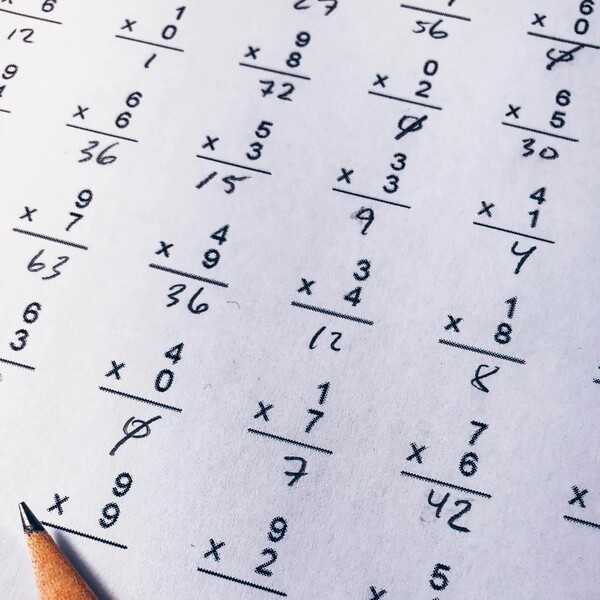 6
12
1
× 0
1
9
× 8
72
27
56
0
× 2
0
6
× 0
0
9
6
× 6
36
5
× 3
15
3
× 3
9
6
× 5
30
4
× 1
4
9
× 7
63
4
× 9
36
3
× 4
12
1
× 8
8
6
3
4
× 0
0
1
× 7
7
7
× 6
42
9
× 9
9
× 2
5
×
×